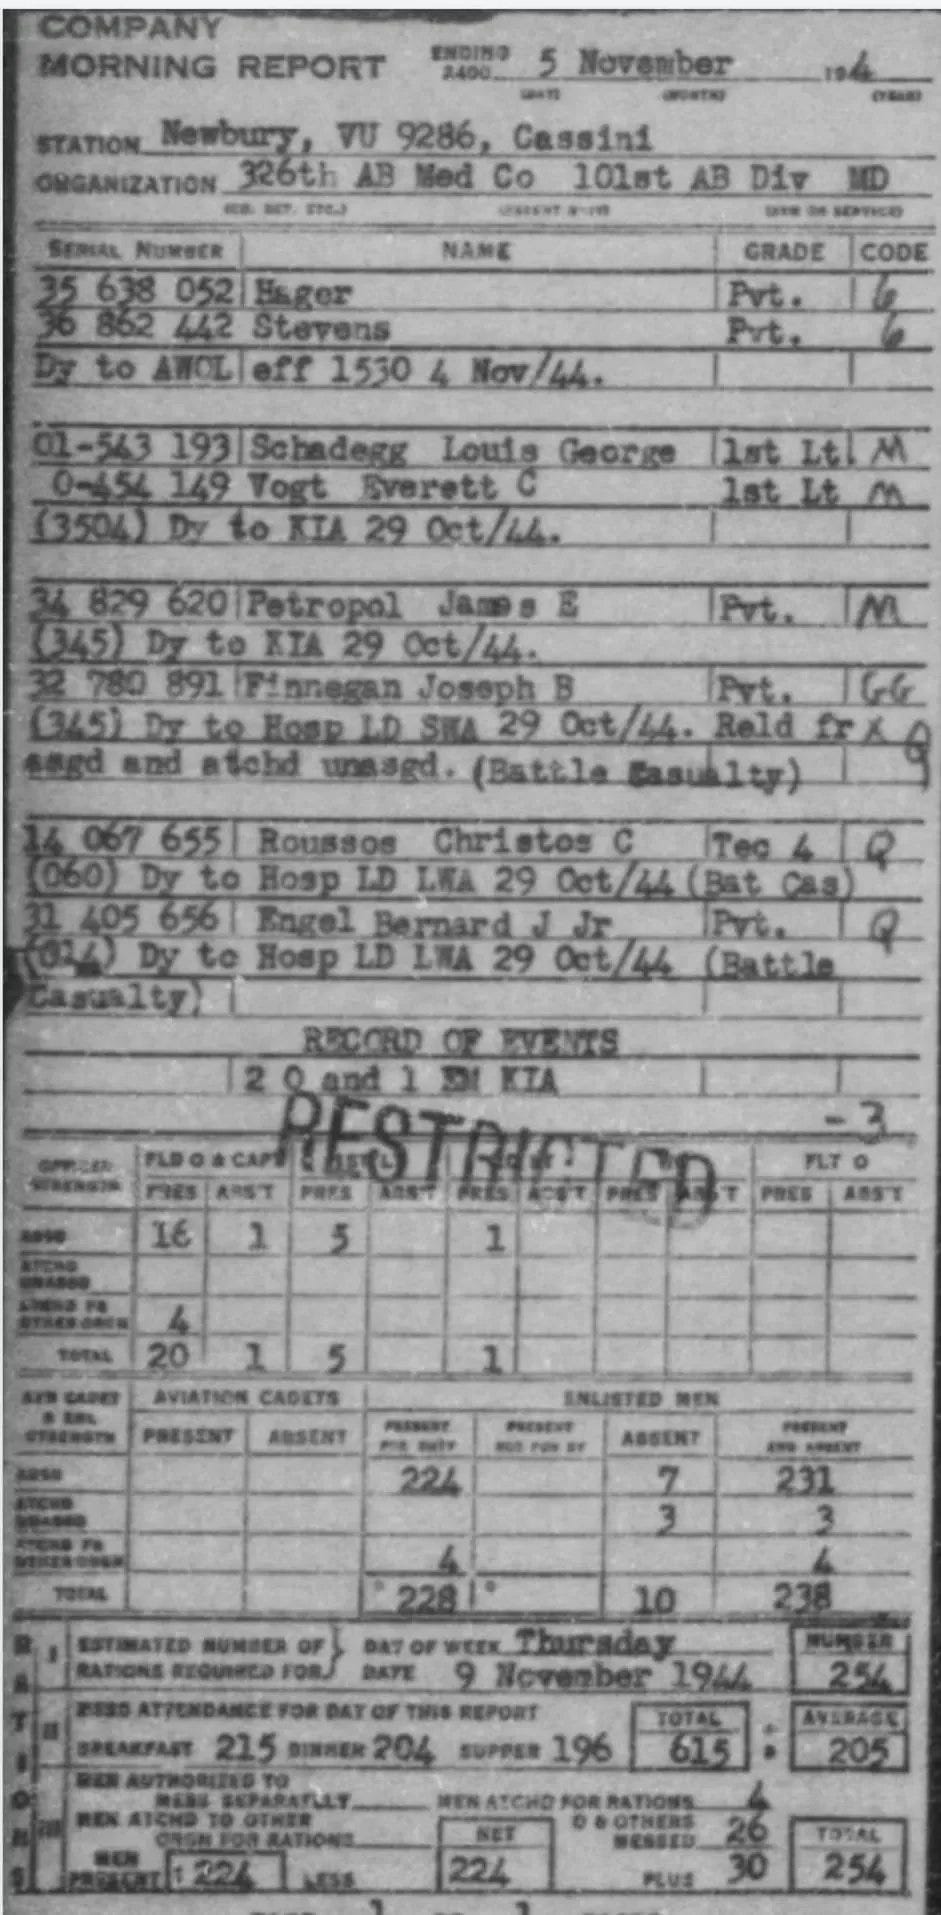 COMPANY
MORNING REPORT ENDING 2400 5 November 194 4
(DAY) (MONTH) (YEAR)
STATION Newbury, VU 9286, Cassini
ORGANIZATION 326th AB Med Co 101st AB Div MD
(CO. DET. ETC.) (PARENT UNIT) (ARM OR SERVICE)
SERIAL NUMBER NAME GRADE CODE
35 638 052 Hager Pvt. 6
36 862 442 Stevens Pvt. 6
Dy to AWOL eff 1530 4 Nov/44.
01-543 193 Schadegg Louis George 1st Lt. M
0-454 149 Vogt Everett C 1st Lt M
(3504) Dy to KIA 29 Oct/44.
34 829 620 Petropol James E Pvt. M
(345) Dy to KIA 29 Oct/44.
32 780 891 Finnegan Joseph B Pvt. GG
(345) Dy to Hosp LD SWA 29 Oct/44. Reld fr X 9
asgd and atchd unasgd. (Battle Casualty)
14 067 655 Roussos Christos C Tec 4 Q
(060) Dy to Hosp LD LWA 29 Oct/44 (Bat Cas)
31 405 656 Engel Bernard J Jr Pvt. Q
(014) Dy to Hosp LD LWA 29 Oct/44 (Battle
Casualty)
RECORD OF EVENTS
2 O and 1 EM KIA
- 3
RESTRICTED
OFFICER STRENGTH FLD O & CAPT FLT O
PRES ABS'T PRES ABS'T PRES ABS'T PRES ABS'T PRES ABS'T
ASGD 16 1 5 1
ATCHD UNASGD
ATCHD FR OTHER ORGN 4
TOTAL 20 1 5 1
AVN CADET & ENL STRENGTH AVIATION CADETS ENLISTED MEN
PRESENT ABSENT PRESENT FOR DUTY PRESENT NOT FOR DY ABSENT PRESENT AND ABSENT
ASGD 224 7 231
ATCHD UNASGD 3 3
ATCHD FR OTHER ORGN 4 4
TOTAL 228 10 238
RATIONS
I ESTIMATED NUMBER OF RATIONS REQUIRED FOR } DAY OF WEEK Thursday NUMBER
DATE 9 November 1944 254
II MESS ATTENDANCE FOR DAY OF THIS REPORT TOTAL AVERAGE
BREAKFAST 215 DINNER 204 SUPPER 196 615 205
III MEN AUTHORIZED TO MESS SEPARATELY MEN ATCHD FOR RATIONS 4
MEN ATCHD TO OTHER ORGN FOR RATIONS NET O & OTHERS MESSED 26 TOTAL
MEN PRESENT 224 LESS 224 PLUS 30 254